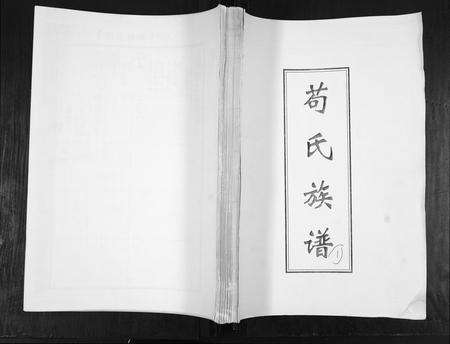 苟氏族谱
①